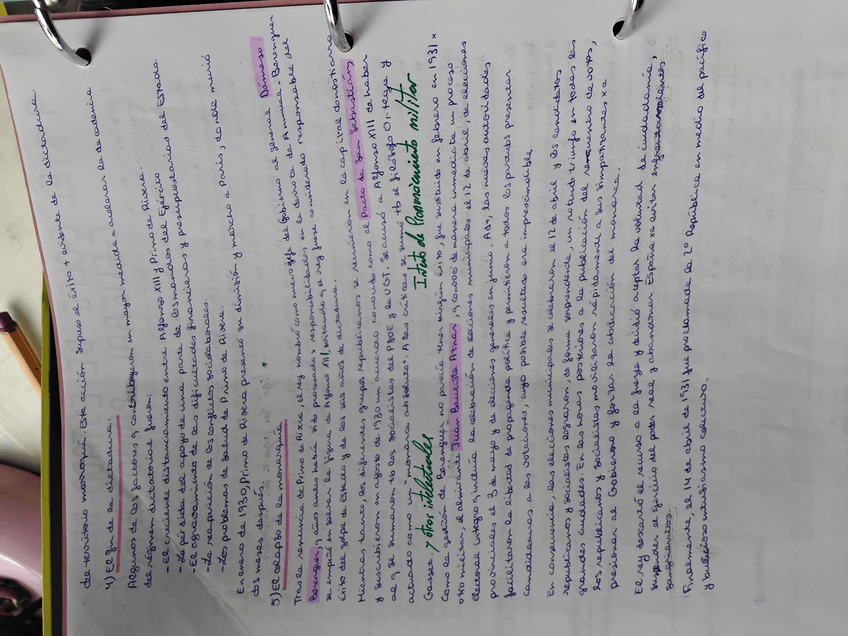 del territorio marroquí. Esta acción supuso el éxito + evidente de la dictadura.
4) El fin de la dictadura:
Algunos de los factores q contribuyeron en mayor medida a acelerar la decadencia
del régimen dictatorial fueron:
- El creciente distanciamiento entre Alfonso XIII y Primo de Rivera.
- La pérdida del apoyo de una parte de los mandos del Ejército.
- El agravamiento de las dificultades financieras y presupuestarias del Estado.
- La reaparición de los conflictos sociolaborales.
- Los problemas de salud de Primo de Rivera.
En enero de 1930, Primo de Rivera presentó su dimisión y marchó a París, donde murió
dos meses después.
5) El colapso de la monarquía
Tras la renuncia de Primo de Rivera, el rey nombró como nuevo jefe del gobierno al general Dámaso
Berenguer, q años antes había sido procesado x responsabilidades en la derrota de Annual. Berenguer
se empeñó en salvar la figura de Alfonso XIII, evitando q el rey fuese considerado responsable del
éxito del golpe de Estado y de los seis años de dictadura.
Mientras tanto, los diferentes grupos republicanos se reunieron en la capital donostiarra
y suscribieron en agosto de 1930 un acuerdo conocido como el Pacto de San Sebastián,
al q se sumaron tb los socialistas del PSOE y la UGT. Se acusó a Alfonso XIII de haber
actuado como un "monarca absoluto". A las críticas se sumó tb el filósofo Ortega y
Gasset y otros intelectuales Intento de Pronunciamiento militar
Como la gestión de Berenguer no parecía tener ningún éxito, fue sustituido en febrero en 1931 x
otro militar, el almirante Juan Bautista Aznar, q convocó de manera inmediata un proceso
electoral íntegro q incluía la celebración de elecciones municipales el 12 de abril, de elecciones
provinciales el 3 de mayo y de elecciones generales en junio. Así, las nuevas autoridades
facilitaron la libertad de propaganda política y permitieron a todos los partidos presentar
candidaturas a las votaciones, cuyo posible resultado era impredecible.
En consecuencia, las elecciones municipales se celebraron el 12 de abril y los candidatos
republicanos y socialistas lograron, de forma sorprendente, un rotundo triunfo en todas las
grandes ciudades. En las horas posteriores a la publicación del recuento de votos,
los republicanos y socialistas movilizaron rápidamente a sus simpatizantes xa
presionar al Gobierno y forzar la abdicación del monarca.
El rey descartó el recurso a la fuerza y decidió aceptar la voluntad de ciudadanía,
suspender el ejercicio del poder real y abandonar España xa evitar enfrentamientos
sangrientos.
Finalmente, el 14 de abril de 1931 fue proclamada la 2º República en medio del pacífico
y entusiasmo colectivo.